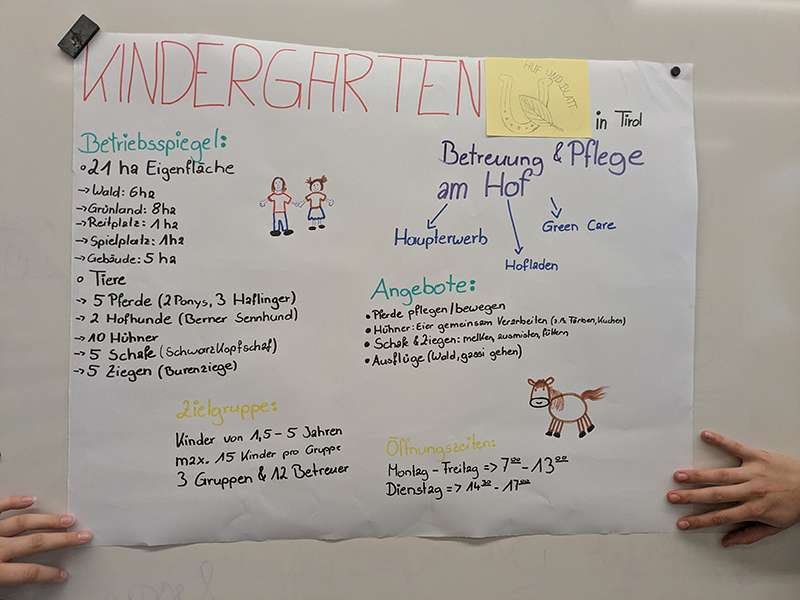 KINDERGARTEN
HUF UND BLATT
in Tirol
Betriebsspiegel:
21 ha Eigenfläche
→ Wald: 6ha
→ Grünland: 8ha
→ Reitplatz: 1 ha
→ Spielplatz: 1ha
→ Gebäude: 5 ha
Tiere
→ 5 Pferde (2 Ponys, 3 Haflinger)
→ 2 Hofhunde (Berner Sennhund)
→ 10 Hühner
→ 5 Schafe (Schwarzkopfschaf)
→ 5 Ziegen (Burenziege)
Betreuung & Pflege
am Hof
Haupterwerb
Hofladen
Green Care
Angebote:
• Pferde pflegen/bewegen
• Hühner: Eier gemeinsam verarbeiten (z.B. Färben, Kuchen)
• Schafe & Ziegen: melken, ausmisten, füttern
• Ausflüge (Wald, gassi gehen)
Zielgruppe:
Kinder von 1,5 - 5 Jahren
max. 15 Kinder pro Gruppe
3 Gruppen & 12 Betreuer
Öffnungszeiten:
Montag - Freitag => 7⁰⁰ - 13⁰⁰
Dienstag => 14³⁰ - 17⁰⁰